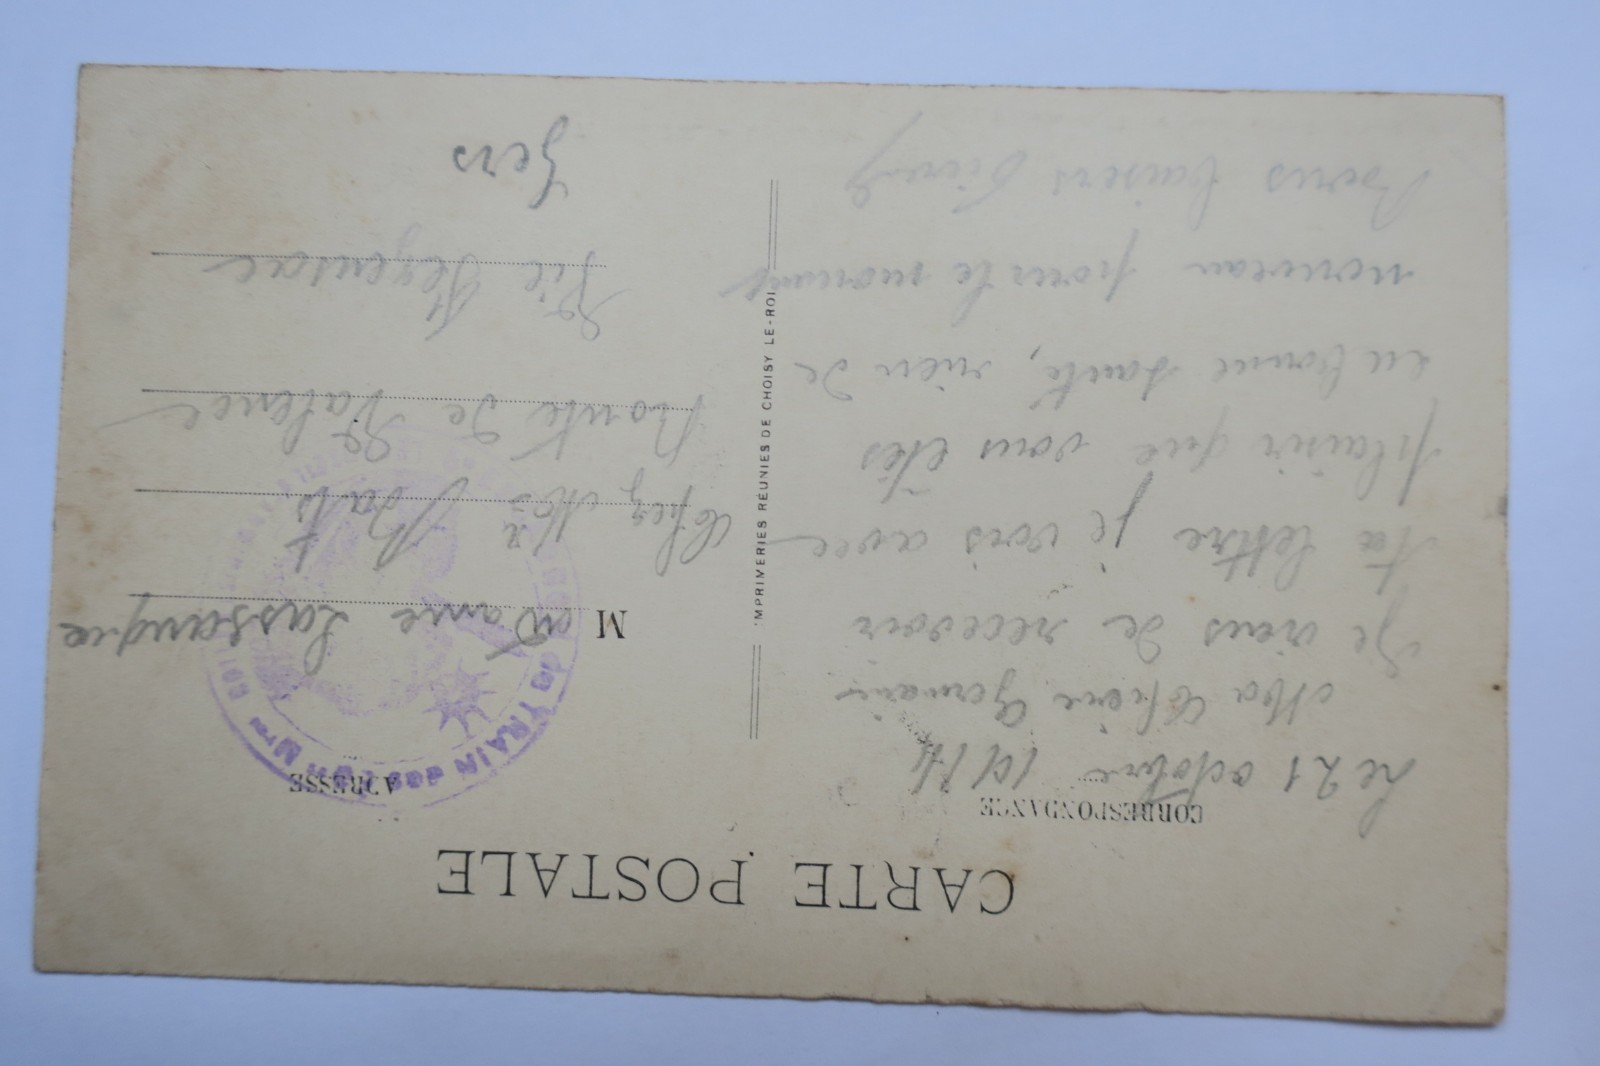 CARTE POSTALE
CORRESPONDANCE
Le 21 octobre 1914
Ma Chère Germaine
Je viens de recevoir
ta lettre je vois avec
plaisir que vous êtes
en bonne santé, rien de
nouveau pour le moment
Bons baisers
IMPRIMERIES RÉUNIES DE CHOISY LE-ROI
ADRESSE
Madame Lassangue
Chez
Route de Valence
Vic Fezensac
Gers
du TRAIN des EQU Mres